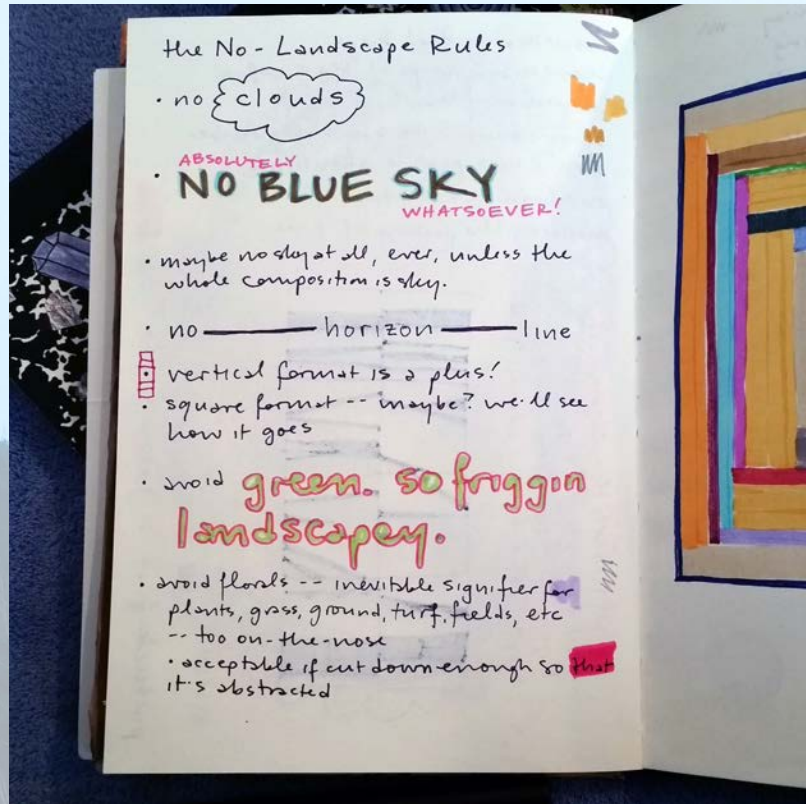 the No-Landscape Rules
• no clouds
ABSOLUTELY
• NO BLUE SKY
WHATSOEVER!
• maybe no sky at all, ever, unless the
whole composition is sky.
• no — horizon — line
• vertical format is a plus!
• square format -- maybe? we'll see
how it goes
• avoid green. so friggin
landscapey.
• avoid florals -- inevitable signifier for
plants, grass, ground, turf, fields, etc
-- too on-the-nose
• acceptable if cut down enough so that
it's abstracted